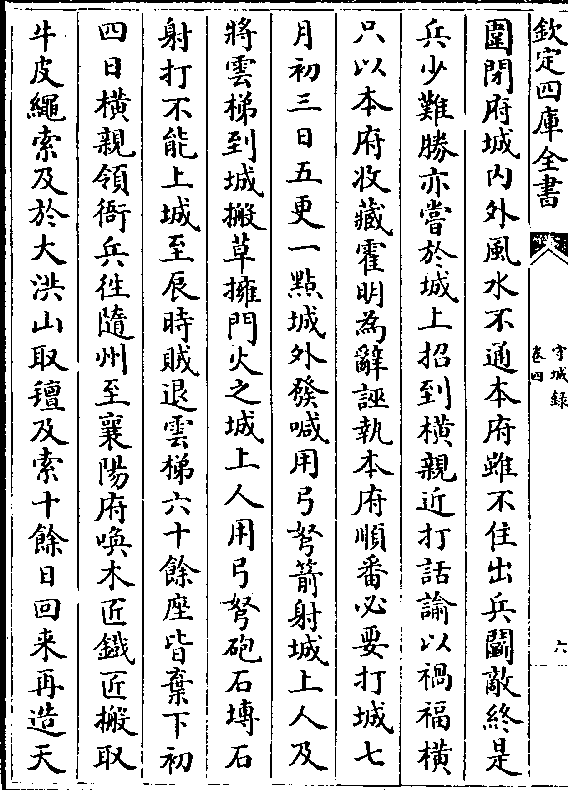 欽定四庫全書
守城録
卷四
六
圍閉府城内外風水不通本府雖不住出兵鬭敵終是
兵少難勝亦嘗於城上招到横親近打話諭以禍福横
只以本府收藏霍明為辭誣執本府順番必要打城七
月初三日五更一點城外發喊用弓弩箭射城上人及
將雲梯到城搬草擁門火之城上人用弓弩砲石塼石
射打不能上城至辰時賊退雲梯六十餘座皆棄下初
四日横親領衙兵徃隨州至襄陽府喚木匠鐵匠搬取
牛皮繩索及於大洪山取氊及索十餘日回来再造天